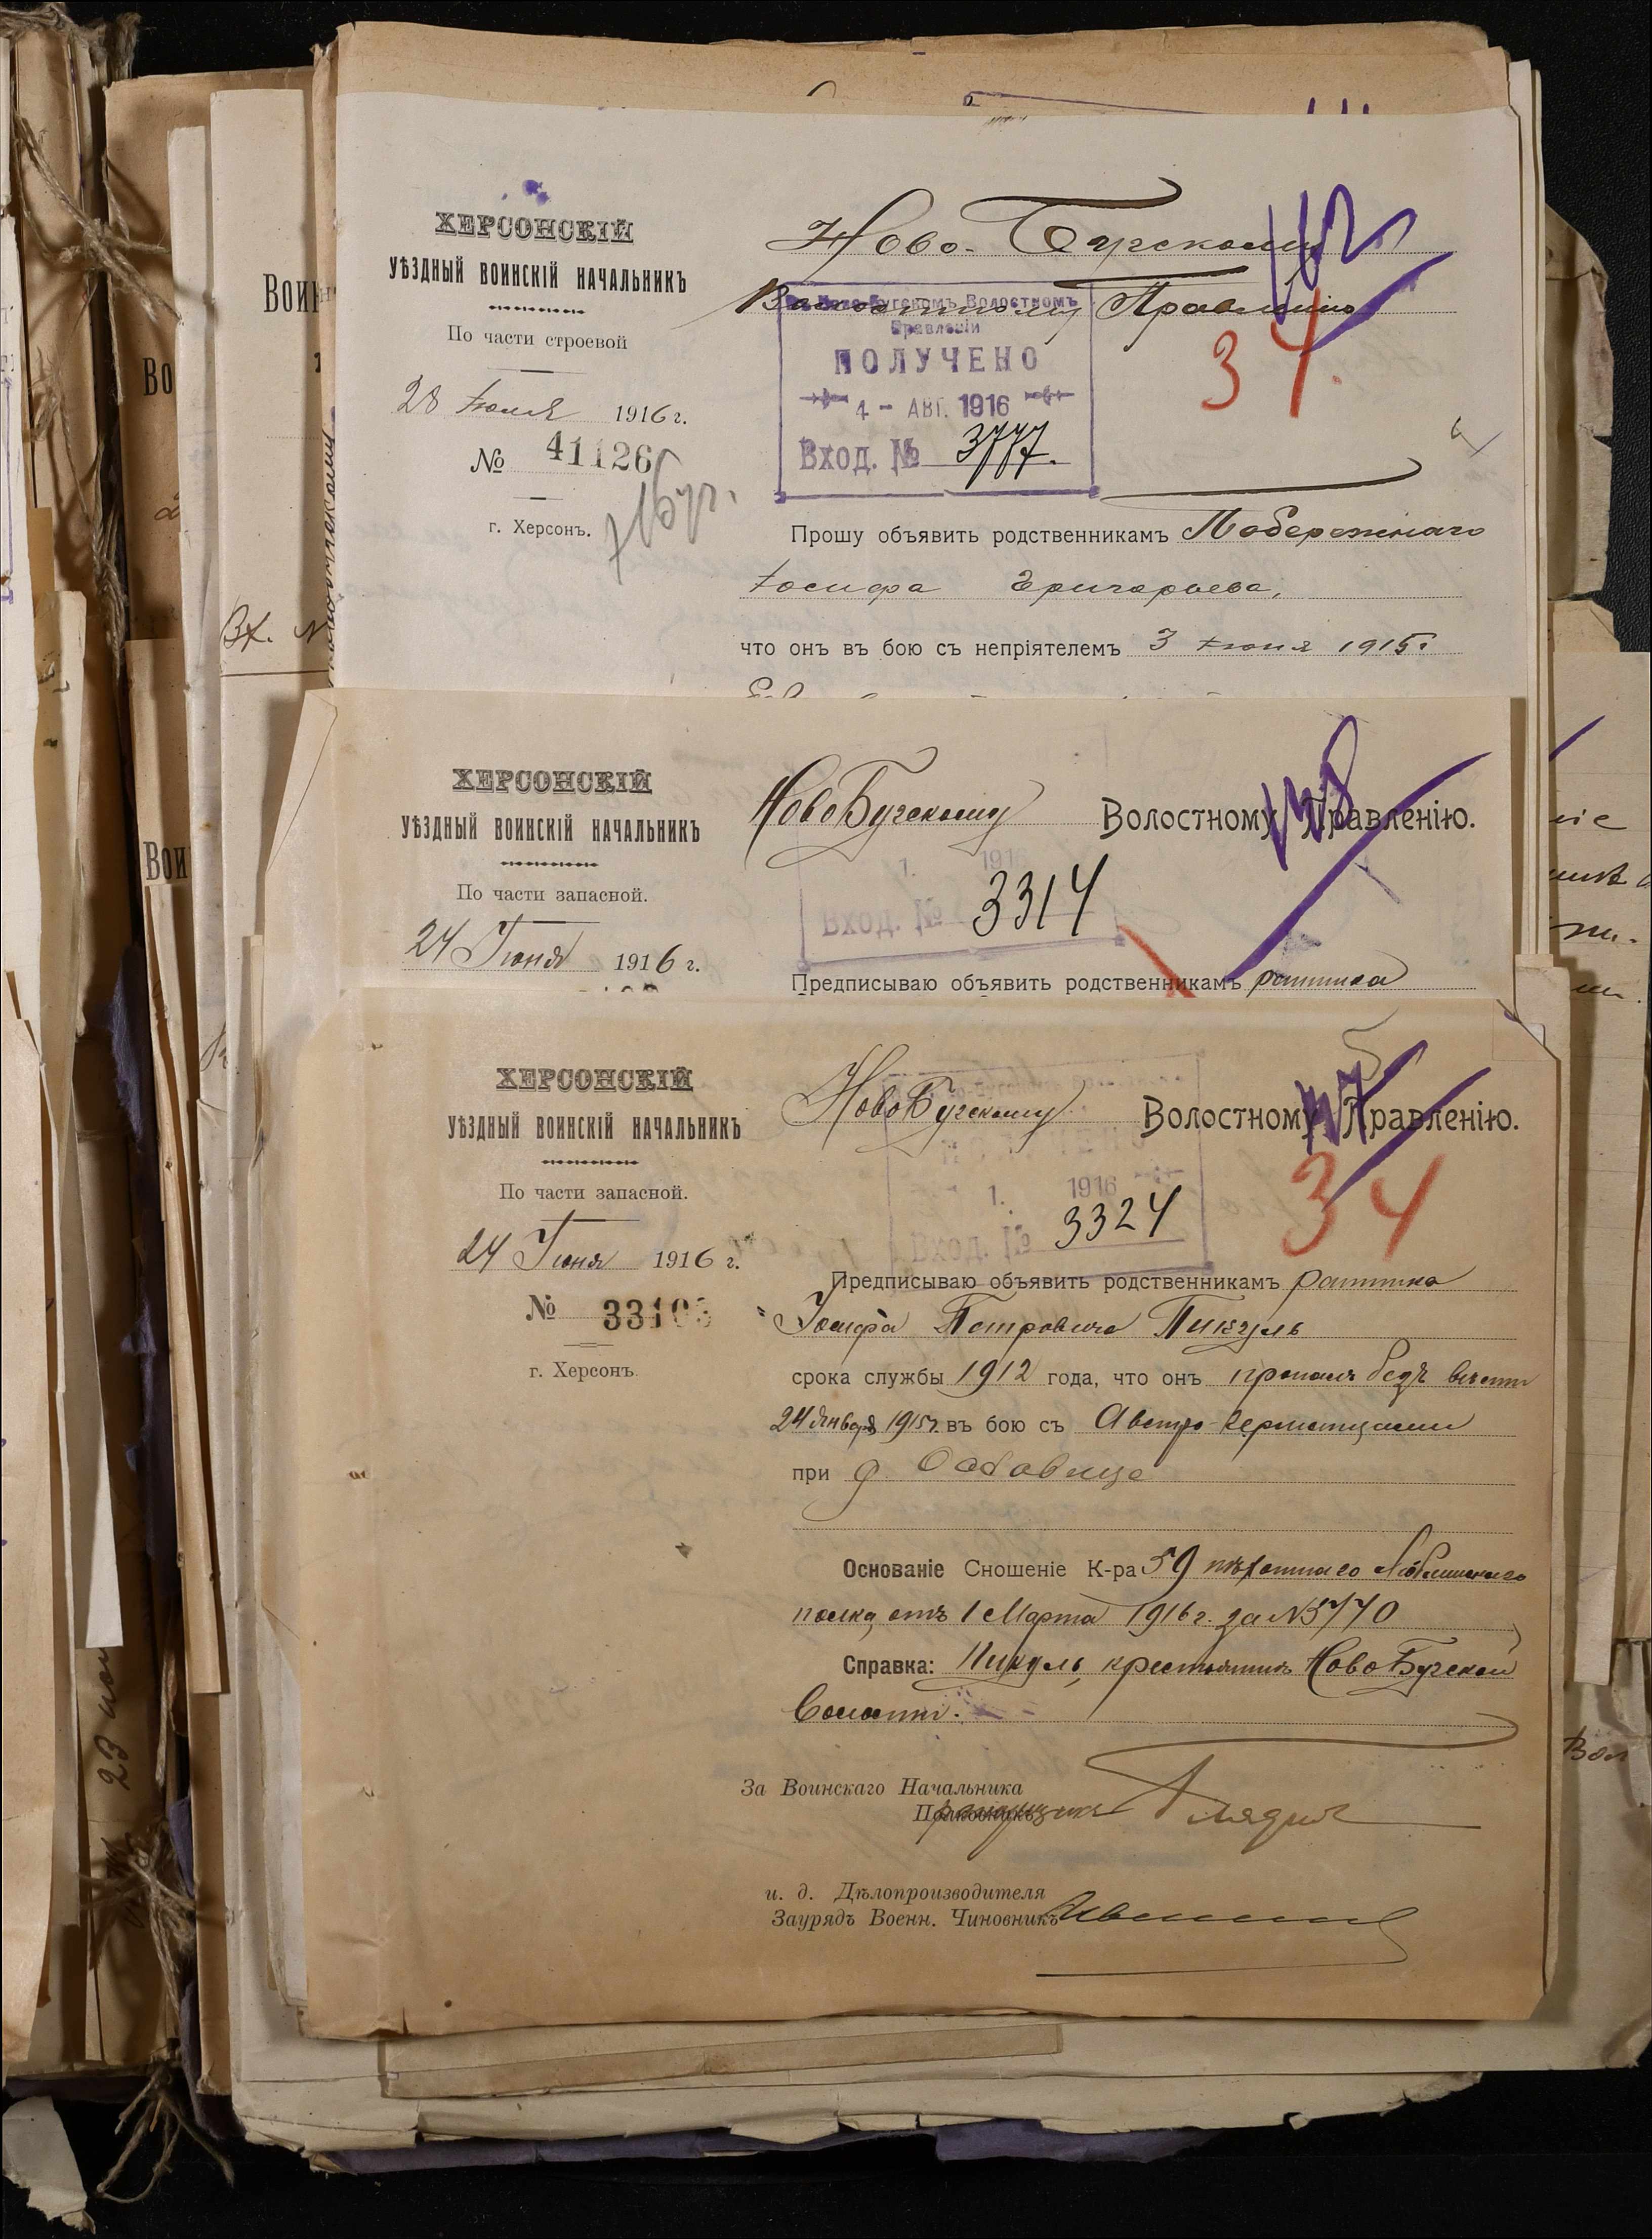 ХЕРСОНСКІЙ
УѢЗДНЫЙ ВОИНСКІЙ НАЧАЛЬНИКЪ
По части строевой
28 Іюля 1916 г.
№ 41126
г. Херсонъ.
Ново-Бугскому
Волостному Правленію
Ново-Бугскомъ Волостномъ
Правленіи
ПОЛУЧЕНО
4 - АВГ. 1916
Вход. № 3777.
34.
Прошу объявить родственникамъ Побережнаго
Іосифа Григорьева,
что онъ въ бою съ непріятелемъ 3 Іюня 1915г
ХЕРСОНСКІЙ
УѢЗДНЫЙ ВОИНСКІЙ НАЧАЛЬНИКЪ
По части запасной.
24 Іюня 1916 г.
НовоБугскому Волостному Правленію.
1. 1916
Вход. № 3314
Предписываю объявить родственникамъ ратника
ХЕРСОНСКІЙ
УѢЗДНЫЙ ВОИНСКІЙ НАЧАЛЬНИКЪ
По части запасной.
24 Іюня 1916 г.
№ 33103
г. Херсонъ.
НовоБугскому Волостному Правленію.
1. 1916
Вход. № 3324
34
Предписываю объявить родственникамъ ратника
Іосифа Петровича Пикуль
срока службы 1912 года, что онъ пропалъ безъ вѣсти
24 Января 1915г. въ бою съ Австро-Германцами
при д.
Основаніе Сношеніе К-ра 59 пѣхотнаго Люблинскаго
полка, отъ 1 Марта 1916 г. за № 5770
Справка: Пикуль, крестьянинъ НовоБугской
Волости.
За Воинскаго Начальника
Полковникъ
и. д. Дѣлопроизводителя
Заурядъ Военн. Чиновникъ